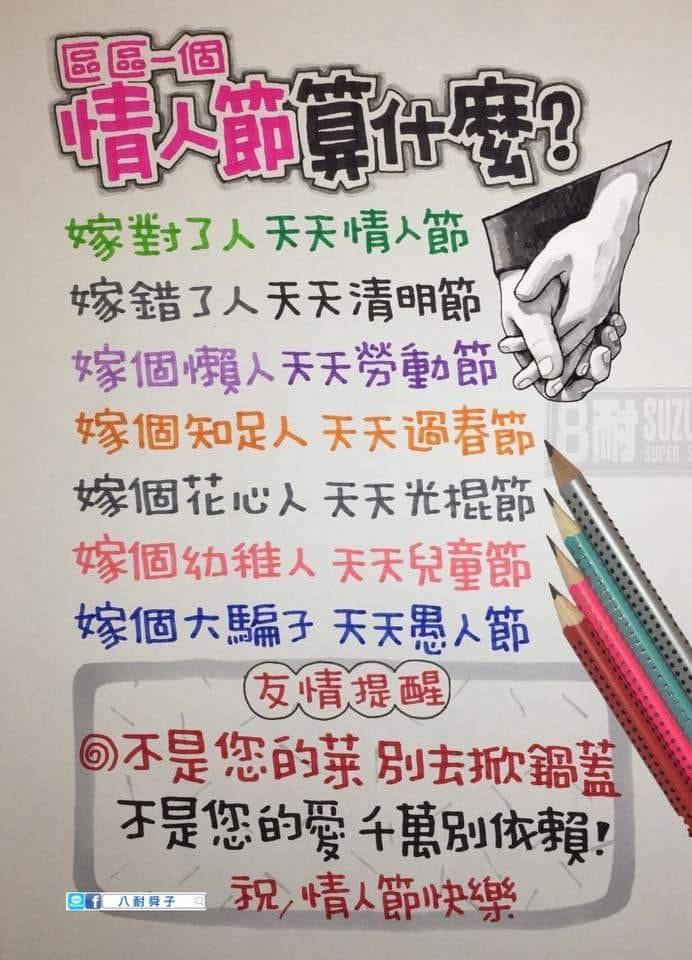 區區一個
情人節算什麼?
嫁對了人 天天情人節
嫁錯了人 天天清明節
嫁個懶人 天天勞動節
嫁個知足人 天天過春節
嫁個花心人 天天光棍節
嫁個幼稚人 天天兒童節
嫁個大騙子 天天愚人節
8耐 SUZU
SUPER S
友情提醒
不是您的菜 別去掀鍋蓋
不是您的愛 千萬別依賴!
祝/情人節快樂
八耐舜子